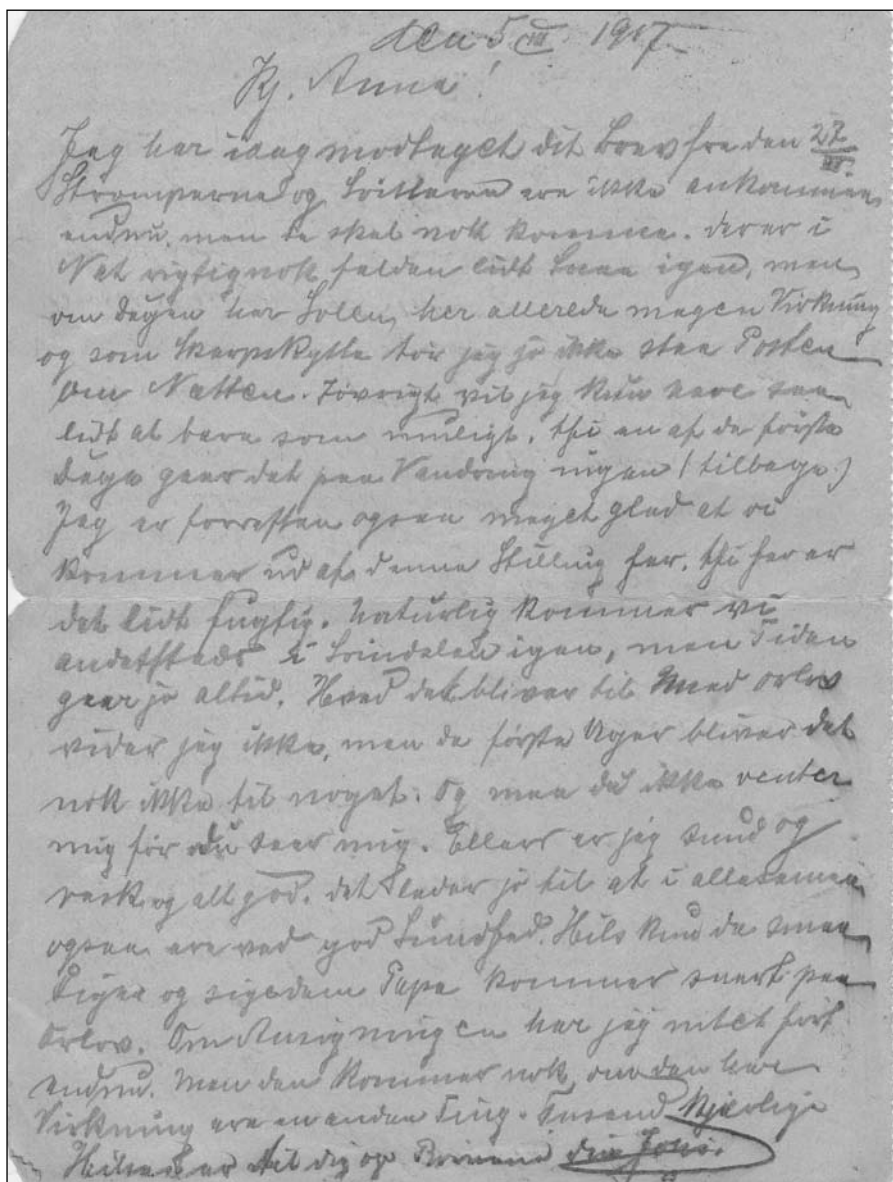 den 5/III 1917
Kj. Anna!
Jeg har idag modtaget dit Brev fra den 27/II.
Strømperne og ere ikke ankommen
endnu, men de skal nok komme. Der er i
Nat rigtignok falden lidt Snee igen, men
om Dagen har Solen her allerede megen Virkning
og som Skarpskytte tør jeg jo ikke staa Posten
om Natten. Iøvrigt vil jeg kun have saa
lidt at bære som muligt, thi en af de første
Dage gaar det paa Vandring igen (tilbage)
Jeg er forresten ogsaa meget glad at vi
kommer ud af denne Stilling her, thi her er
det lidt fugtig. Naturlig kommer vi
andetsteds i igen, men Tiden
gaar jo altid. Hvad det bliver til med Orlov
vider jeg ikke, men de første Uger bliver det
nok ikke til noget. Og maa du ikke venter
mig før du seer mig. Ellers er jeg sund og
rask og alt god. Det lader jo til at i allesamen
ogsaa ere ved god Sundhed. Hils kun de smaa
Piger og sig dem Papa kommer snart paa
Orlov. Om Ansøgningen har jeg intet hørt
endnu. Men den kommer nok, om den har
Virkning ere en anden Ting. Tusend kjærlige
Hilsener til dig og Børnene din